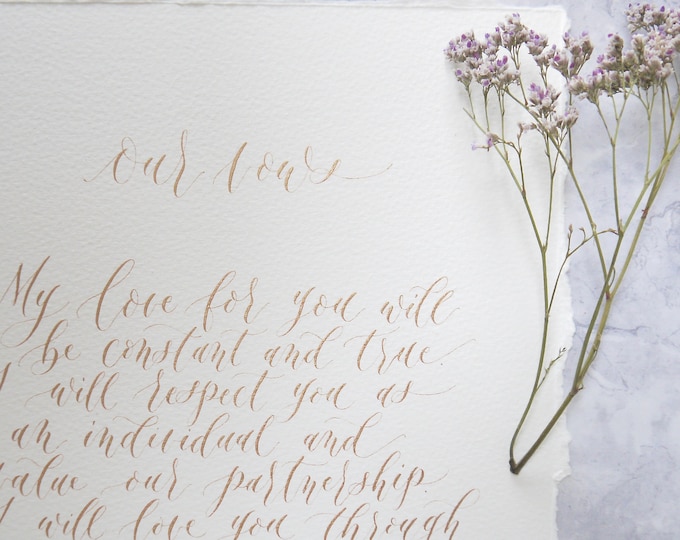 our vows
My love for you will
be constant and true.
I will respect you as
an individual and
value our partnership.
I will love you through